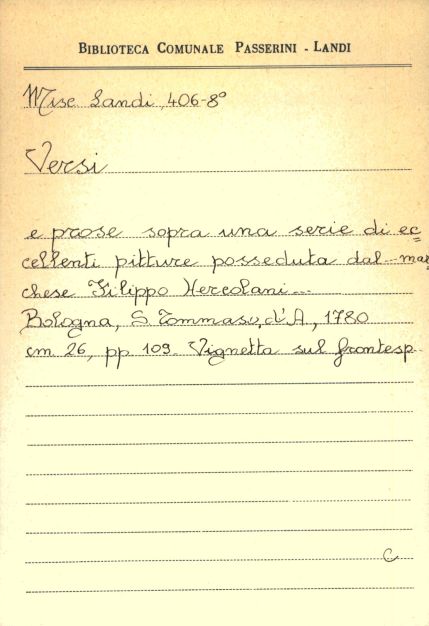 BIBLIOTECA COMUNALE PASSERINI - LANDI
Misc Landi, 406-8°
Versi
e prose sopra una serie di ec=
cellenti pitture posseduta dal mar=
chese Filippo Hercolani...
Bologna, S. Tommaso, d'A., 1780
cm 26, pp 109. Vignetta sul frontesp.
C